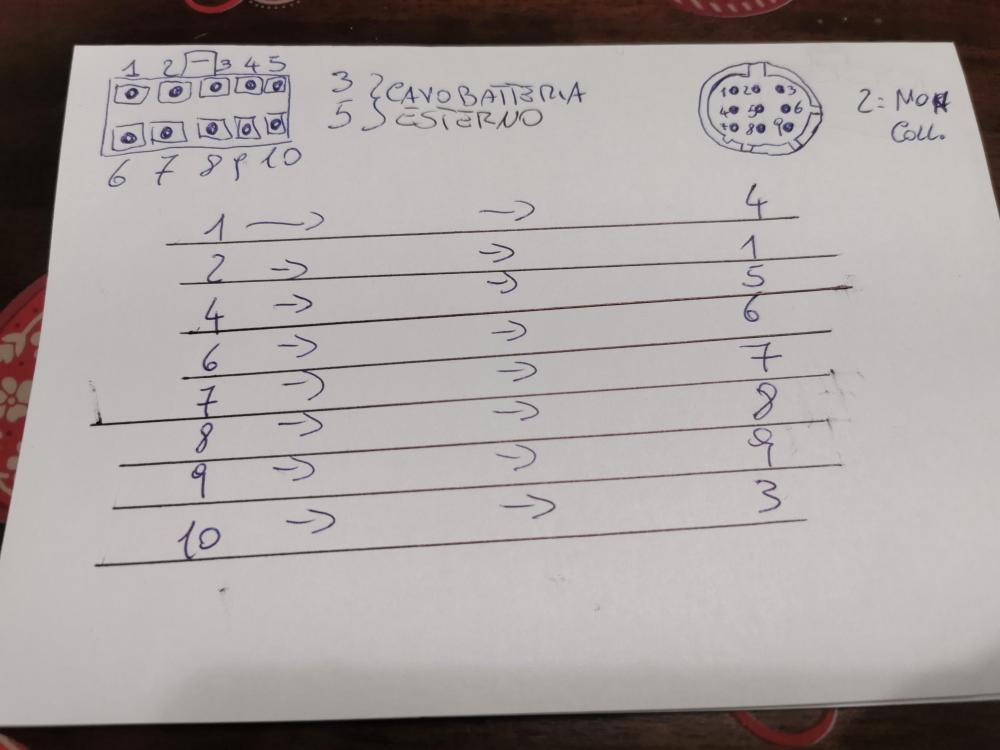 1 2 3 4 5
6 7 8 9 10
3 } CAVO BATTERIA
5 } ESTERNO
1 2 3
4 5 6
7 8 9
2 = NON
COLL.
1 → → 4
2 → → 1
4 → → 5
6 → → 6
7 → → 7
8 → → 8
9 → → 9
10 → → 3